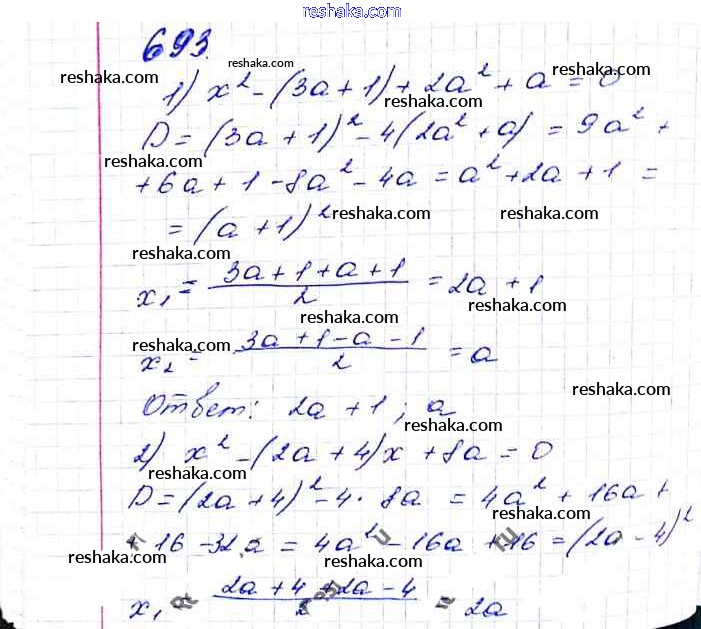 reshaka.com
693.
reshaka.com
reshaka.com
1) x² - (3a + 1) + 2a² + a = 0
reshaka.com
D = (3a + 1)² - 4(2a² + a) = 9a² +
reshaka.com
reshaka.com
+ 6a + 1 - 8a² - 4a = a² + 2a + 1 =
= (a + 1)²
reshaka.com
reshaka.com
reshaka.com
x₁ = (3a + 1 + a + 1)/2 = 2a + 1
reshaka.com
reshaka.com
x₂ = (3a + 1 - a - 1)/2 = a
reshaka.com
reshaka.com
Ответ: 2a + 1; a
reshaka.com
2) x² - (2a + 4)x + 8a = 0
reshaka.com
D = (2a + 4)² - 4 · 8a = 4a² + 16a +
reshaka.com
+ 16 - 32a = 4a² - 16a + 16 = (2a - 4)²
reshaka.com
reshaka.com
x₁ = (2a + 4 + 2a - 4)/2 = 2a